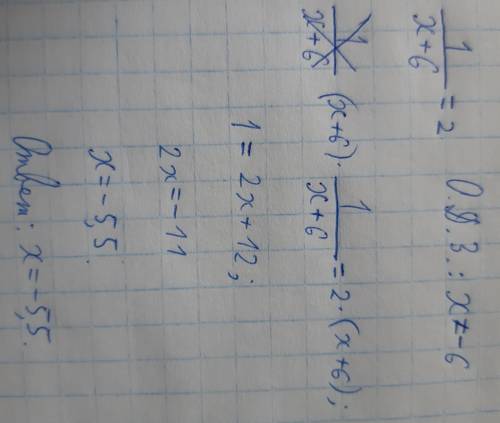 1/(x+6) = 2 О.Д.З.: x ≠ -6
(x+6) · 1/(x+6) = 2 · (x+6);
1 = 2x + 12;
2x = -11
x = -5,5.
Ответ: x = -5,5.